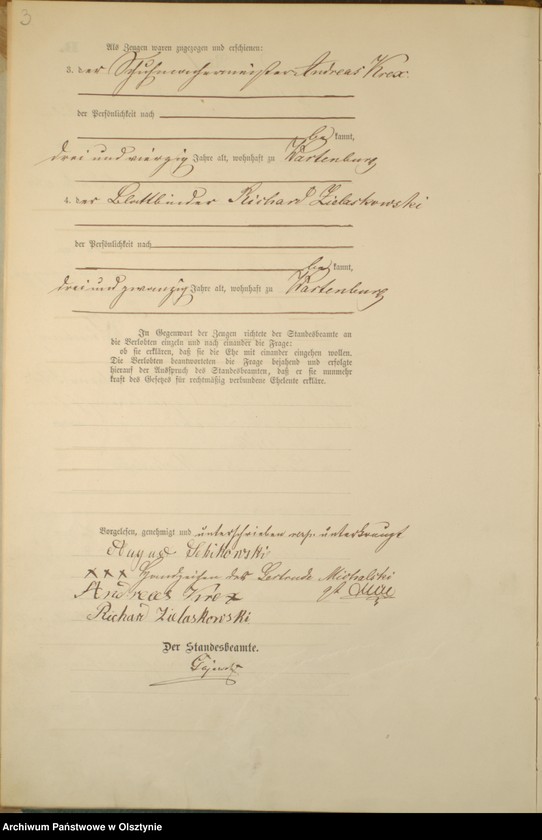 3
Als Zeugen waren zugezogen und erschienen:
3. der Schuhmachermeister Andreas Krex
der Persönlichkeit nach
be kannt,
drei und vierzig Jahre alt, wohnhaft zu Wartenburg
4. der Blattbinder Richard Zielaskowski
der Persönlichkeit nach
be kannt,
drei und zwanzig Jahre alt, wohnhaft zu Wartenburg
In Gegenwart der Zeugen richtete der Standesbeamte an
die Verlobten einzeln und nach einander die Frage:
ob sie erklären, daß sie die Ehe mit einander eingehen wollen.
Die Verlobten beantworteten die Frage bejahend und erfolgte
hierauf der Ausspruch des Standesbeamten, daß er sie nunmehr
kraft des Gesetzes für rechtmäßig verbundene Eheleute erkläre.
Vorgelesen, genehmigt und unterschrieben resp. unterkreuzt
August
xxx Handzeichen der Michalski
Andreas Krex
Richard Zielaskowski
Der Standesbeamte.
Archiwum Państwowe w Olsztynie